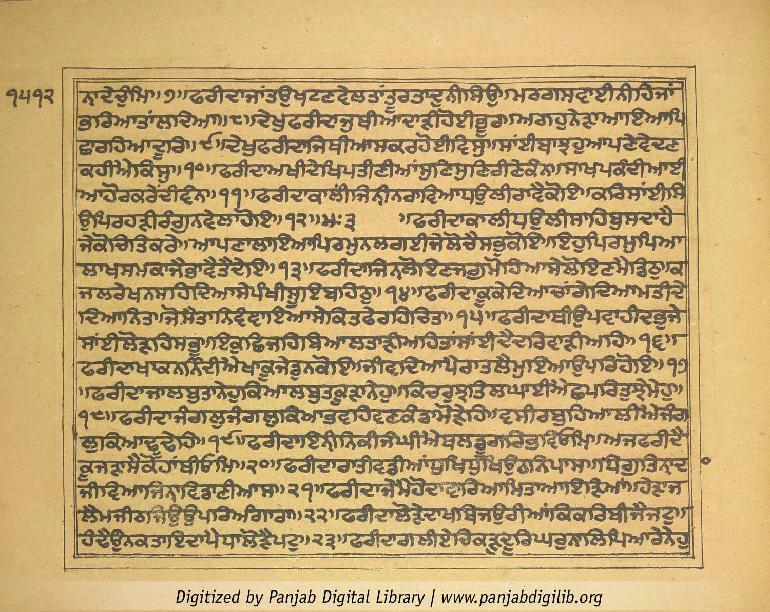 ੧੫੧੨
ਨਾਦੇਚੁੰਮਿ॥੭॥ਫਰੀਦਾਜਾਂਤਉਖਟਣਵੇਲਤਾਂਤੂਰਤਾਦੁਨੀਸਿਉ॥ਮਰਗਸਵਾਈਨੀਹਿਜਾਂ
ਭਰਿਆਤਾਂਲਦਿਆ॥੮॥ਦੇਖੁਫਰੀਦਾਜੁਥੀਆਦਾੜੀਹੋਈਭੂਰ॥ਅਗਹੁਨੇੜਾਆਇਆਪਿ
ਛਾਰਹਿਆਦੂਰਿ॥੯॥ਦੇਖੁਫਰੀਦਾਜਿਥੀਆਸਕਰਹੋਈਵਿਸੁ॥ਸਾਂਈਬਾਝਹੁਆਪਣੇਵੇਦਣ
ਕਹੀਐਕਿਸੁ॥੧੦॥ਫਰੀਦਾਅਖੀਦੇਖਿਪਤੀਣੀਆਂਸੁਣਿਸੁਣਿਰੀਣੇਕੰਨ॥ਸਾਖਪਕੰਦੀਆਈ
ਆਹੋਰਕਰੇਂਦੀਵੰਨ॥੧੧॥ਫਰੀਦਾਕਾਲੀਜਿਨੀਨਰਾਵਿਆਧਉਲੀਰਾਵੈਕੋਇ॥ਕਰਿਸਾਂਈਸਿ
ਉਪਿਰਹੜੀਰੰਗੁਨਵੇਲਾਹੋਇ॥੧੨॥ਮਃ੩ ॥ਫਰੀਦਾਕਾਲੀਧਉਲੀਸਾਹਿਬੁਸਦਾਹੈ
ਜੇਕੋਚਿਤਿਕਰੇ॥ਆਪਣਾਲਾਇਆਪਿਰਮੁਨਲਗਈਜੇਲੋਚੈਸਭੁਕੋਇ॥ਇਹੁਪਿਰਮੁਪਿਆ
ਲਾਖਸਮਕਾਜੈਭਾਵੈਤੈਦੇਇ॥੧੩॥ਫਰੀਦਾਜਿਨਲੋਇਣਜਗੁਮੋਹਿਆਸੇਲੋਇਣਮੈਡਿਠੁ॥ਕ
ਜਲਰੇਖਨਸਹਦਿਆਸੇਪੰਖੀਸੂਇਬਹਿਠੁ॥੧੪॥ਫਰੀਦਾਕੂਕੇਦਿਆਚਾਂਗੇਦਿਆਮਤੀਦੇ
ਦਿਆਨਿਤ॥ਜੋਸੈਤਾਨਿਵੰਞਾਇਆਸੇਕਿਤਫੇਰਹਿਚਿਤ॥੧੫॥ਫਰੀਦਾਥੀਉਪਵਾਹੀਦਭੁ॥ਜੇ
ਸਾਂਈਲੋੜਹਿਸਭੁ॥ਇਕੁਛਿਜਹਿਬਿਆਲਤਾੜੀਅਹਿ॥ਤਾਂਸਾਂਈਦੈਦਰਿਵਾੜੀਅਹਿ॥੧੬॥
ਫਰੀਦਾਖਾਕੁਨਨਿੰਦੀਐਖਾਕੂਜੇਡੁਨਕੋਇ॥ਜੀਵਦਿਆਪੈਰਾਤਲੈਮੁਇਆਉਪਰਿਹੋਇ॥੧੭
॥ਫਰੀਦਾਜਾਲਬੁਤਾਨੇਹੁਕਿਆਲਬੁਤਕੂੜਾਨੇਹੁ॥ਕਿਚਰੁਝਤਿਲਘਾਈਐਛਪਰਿਤੁਟੈਮੇਹੁ॥
੧੮॥ਫਰੀਦਾਜੰਗਲੁਜੰਗਲੁਕਿਆਭਵਹਿਵਣਿਕੰਡਾਮੋੜੇਹਿ॥ਵਸੀਰਬੁਹਿਆਲੀਐਜੰਗ
ਲੁਕਿਆਢੂਢੇਹਿ॥੧੯॥ਫਰੀਦਾਇਨੀਨਿਕੀਜੰਘੀਐਥਲਡੂੰਗਰਭਵਿਓਮਿ॥ਅਜੁਫਰੀਦੈ
ਕੂਜੜਾਸੈਕੋਹਾਂਥੀਓਮਿ॥੨੦॥ਫਰੀਦਾਰਾਤੀਵਡੀਆਂਧੁਖਿਧੁਖਿਉਠਨਿਪਾਸ॥ਧਿਗੁਤਿਨਾਦ
ਜੀਵਿਆਜਿਨਾਵਿਡਾਣੀਆਸ॥੨੧॥ਫਰੀਦਾਜੇਮੈਹੋਦਾਵਾਰਿਆਮਿਤਾਆਇੜਿਆਂ॥ਹੇੜਾਜ
ਲੈਮਜੀਠਜਿਉਉਪਰਿਅੰਗਾਰਾ॥੨੨॥ਫਰੀਦਾਲੋੜੈਦਾਖਬਿਜਉਰੀਆਂਕਿਕਰਿਬੀਜੈਜਟੁ॥
ਹੰਢੈਉਨਕਤਾਇਦਾਪੈਧਾਲੋੜੈਪਟੁ॥੨੩॥ਫਰੀਦਾਗਲੀਏਚਿਕੜੁਦੂਰਿਘਰੁਨਾਲਿਪਿਆਰੇਨੇਹੁ
Digitized by Panjab Digital Library | www.panjabdigilib.org